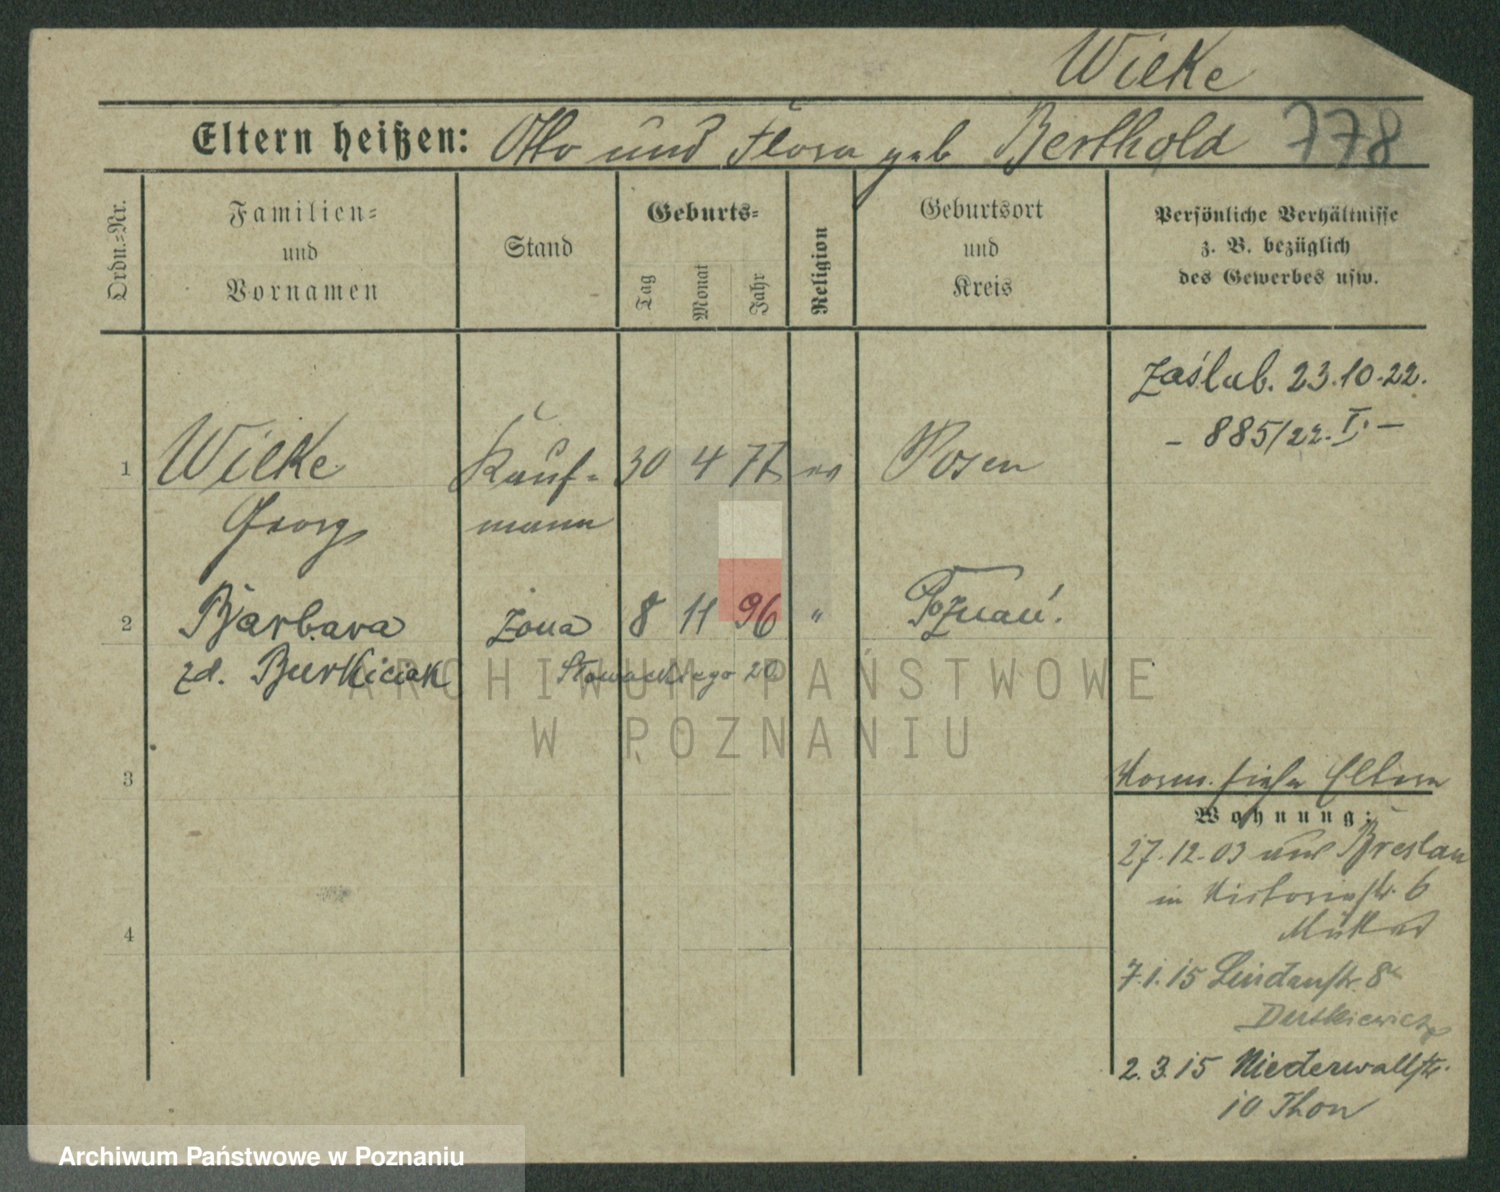 Wilke
Eltern heißen: Otto und Flora geb Berthold 778
Ordn.=Nr.
Familien=
und
Vornamen
Stand
Geburts=
Tag
Monat
Jahr
Religion
Geburtsort
und
Kreis
Persönliche Verhältnisse
z. B. bezüglich
des Gewerbes usw.
Zaślub. 23.10.22.
- 885/22. I. -
1 Wilke Kauf- 30 4 77 ev Posen
Georg mann
2 Barbara żona 8 11 96 " Poznań.
zd. Burkiciak Słowackiego 20
3
4
Vorm. siehe Eltern
Wohnung:
27.12.03 von Breslau
in Viktoriastr. 6
7.1.15 Lindenstr. 8
2.3.15 Niederwallstr.
10 Thon
ARCHIWUM PAŃSTWOWE
W POZNANIU
Archiwum Państwowe w Poznaniu